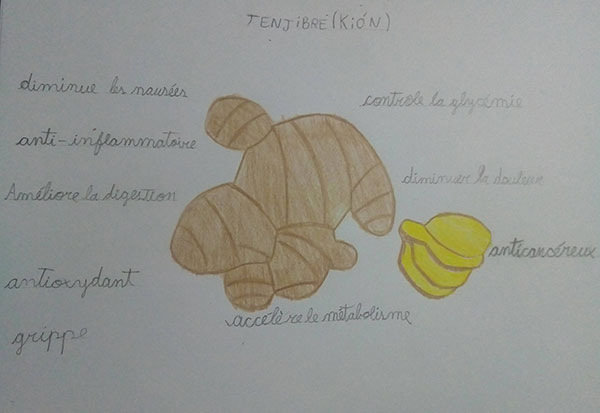 TENJIBRE (KIÓN)
diminue les nausées
contrôle la glycémie
anti-inflammatoire
diminuer la douleur
Améliore la digestion
anticancéreux
antioxydant
accélère le métabolisme
grippe